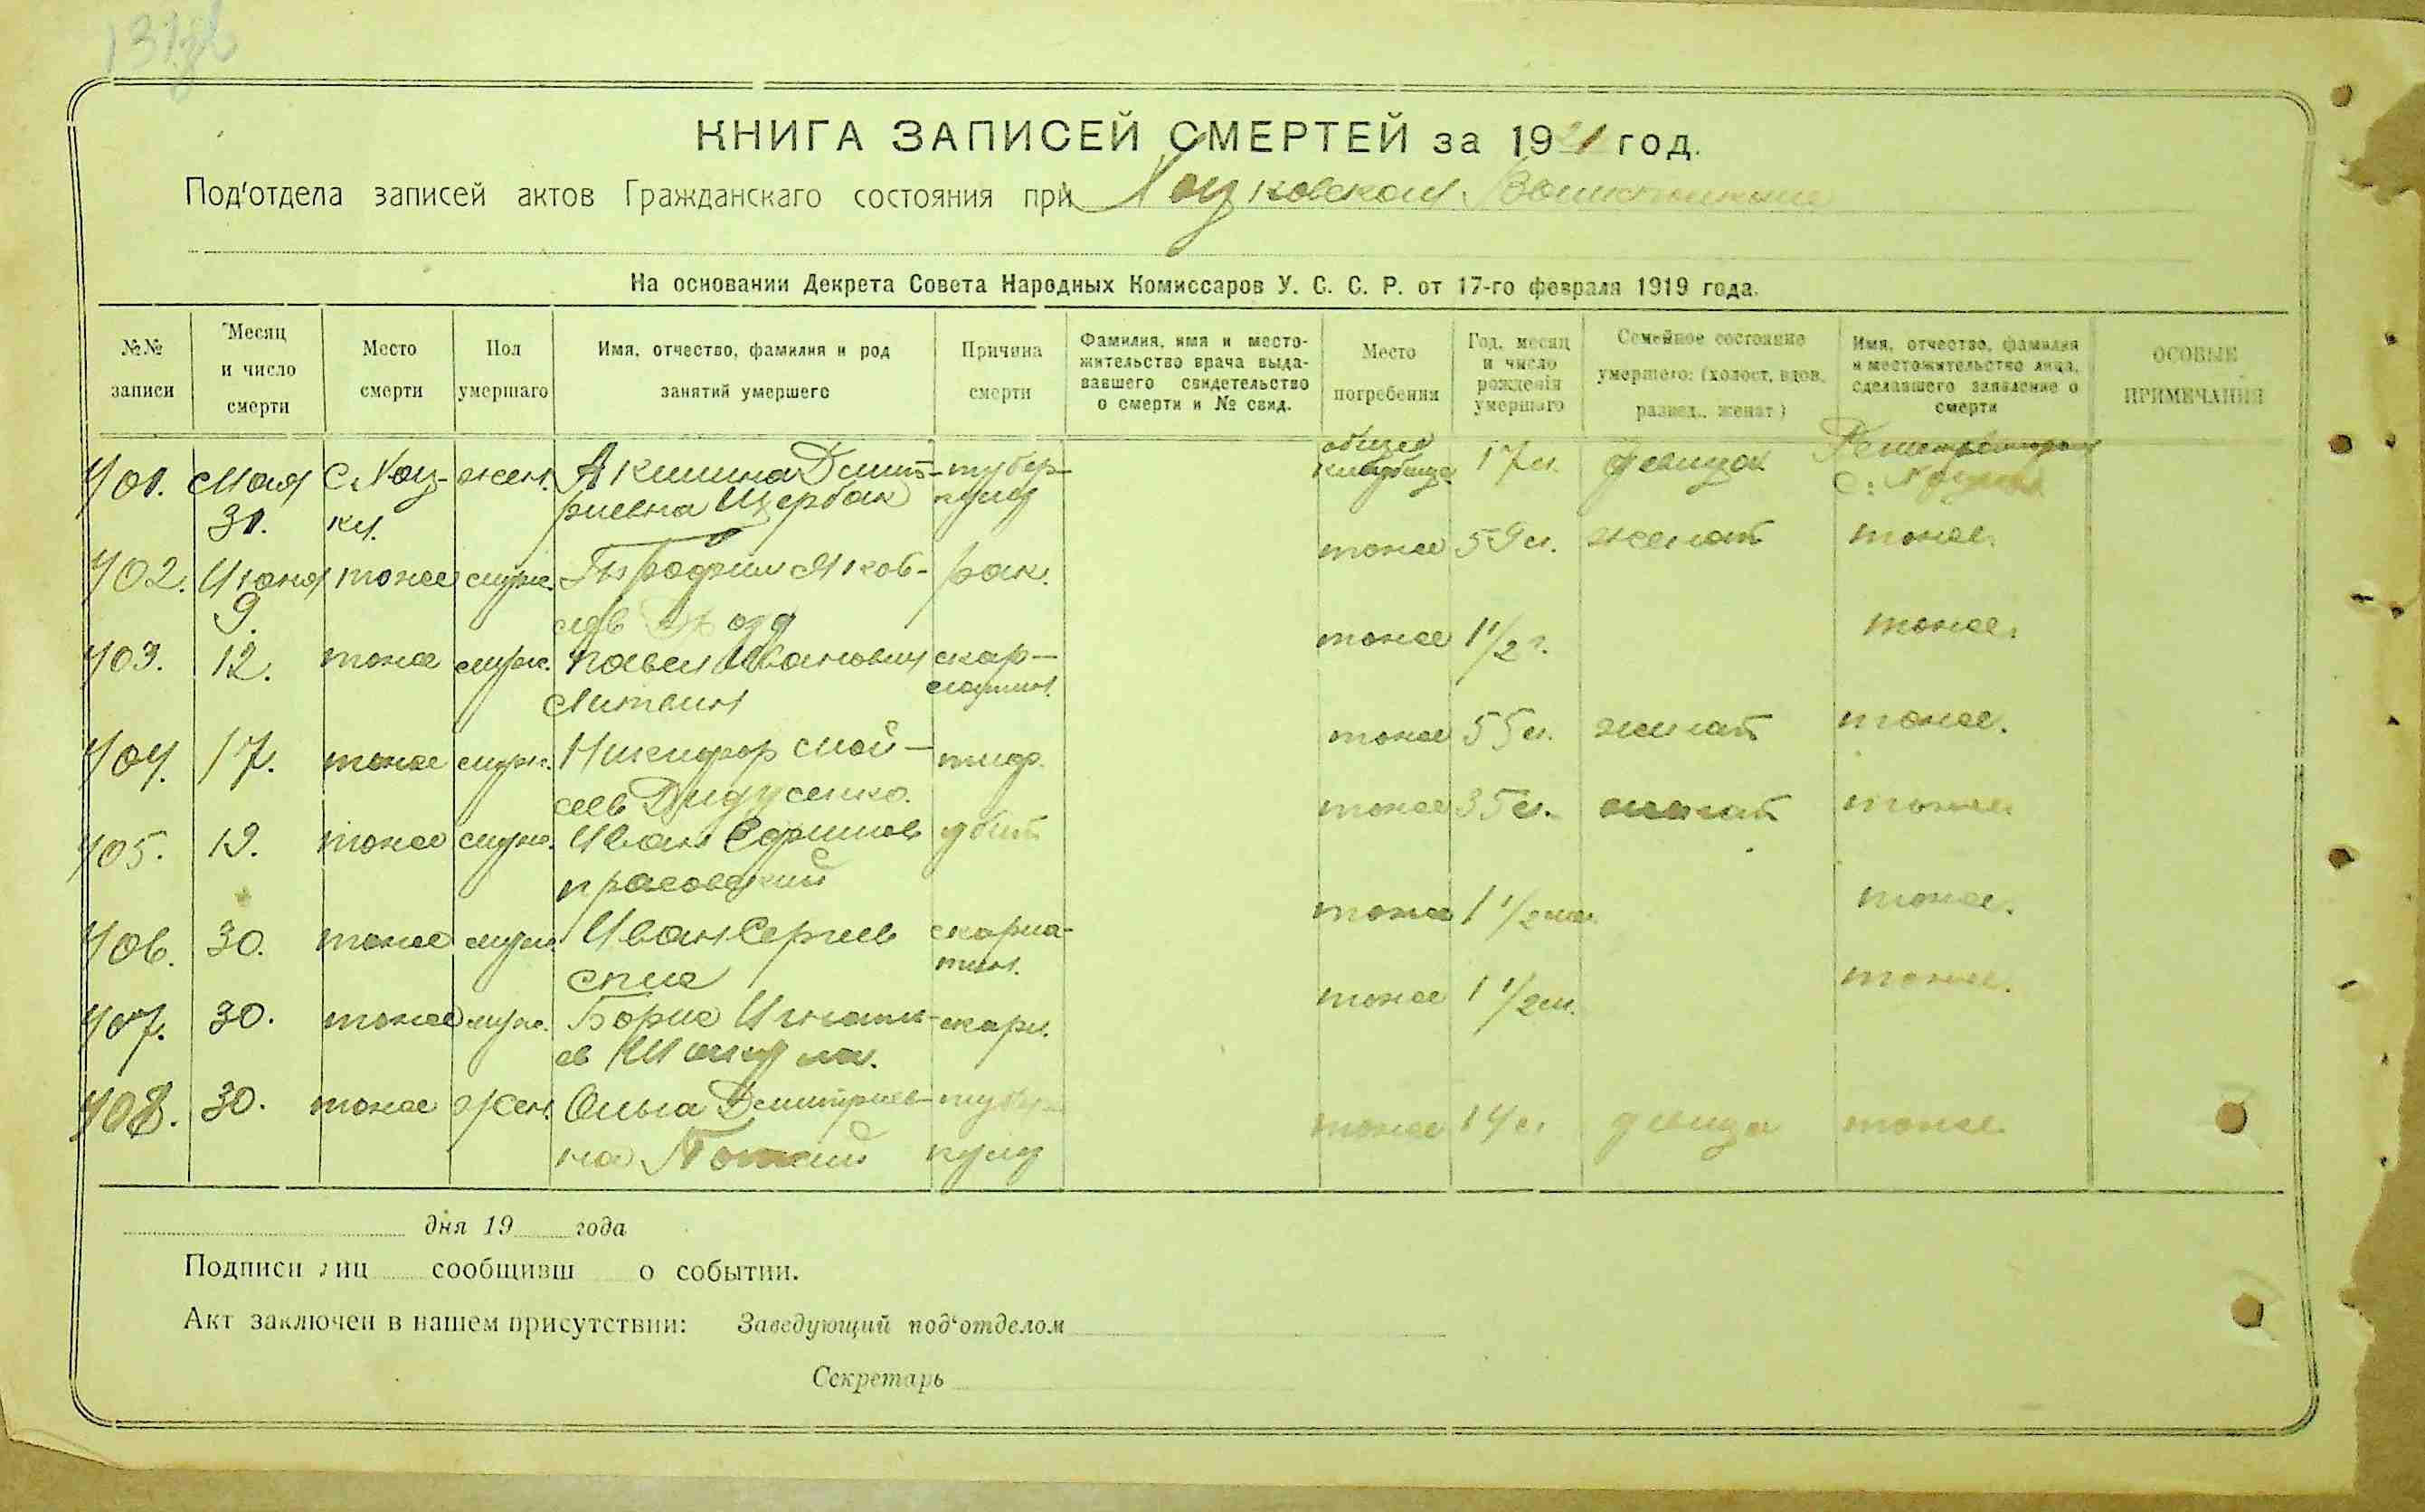 КНИГА ЗАПИСЕЙ СМЕРТЕЙ за 1921 год.
Под'отдела записей актов Гражданскаго состояния при
На основании Декрета Совета Народных Комиссаров У. С. С. Р. от 17-го февраля 1919 года.
№№ записи
Месяц и число смерти
Место смерти
Пол умершаго
Имя, отчество, фамилия и род занятий умершего
Причина смерти
Фамилия, имя и местожительство врача выдававшего свидетельство о смерти и № свид.
Место погребения
Год, месяц и число рождения умершаго
Семейное состояние умершего: (холост, вдов, развед., женат)
Имя, отчество, фамилия и местожительство лица, сделавшего заявление о смерти
ОСОБЫЕ ПРИМЕЧАНИЯ
701. Мая 31. с. Хоц-ки. жен. Акилина Дмит-риевна Щербак тубер-кулез общее кладбище 17 л. девица с.
702. Июня 9. тоже муж. Яков-лев рак. тоже 59 л. женат тоже.
703. 12. тоже муж. Павел Иванович Литвин скар-латин. тоже 1 1/2 г. тоже.
704. 17. тоже муж. Никифор Мой-сеев Дидусенко. тиф. тоже 55 л. женат тоже.
705. 19. тоже муж. Иван Ефимов убит тоже 35 л. женат тоже.
706. 30. тоже муж. Иван Сергеев скарла-тин. тоже 1 1/2 тоже.
707. 30. тоже муж. Борис Игнать-ев скарл. тоже 1 1/2 тоже.
708. 30. тоже жен. Ольга Дмитриев-на тубер-кулез тоже 14 л. девица тоже
дня 19 года
Подписи лиц сообщивш о событии.
Акт заключен в нашем присутствии: Заведующий под'отделом
Секретарь